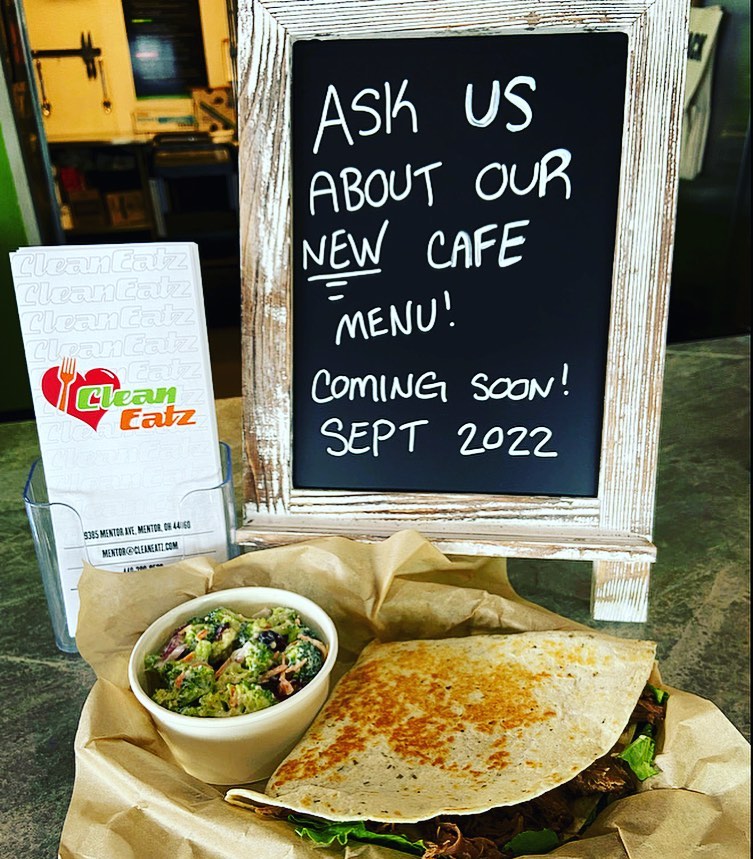 ASK US
ABOUT OUR
NEW CAFE
MENU!
COMING SOON!
SEPT 2022
CleanEatz
CleanEatz
CleanEatz
CleanEatz
Clean
Eatz
9385 MENTOR AVE, MENTOR, OH 44060
MENTOR@CLEANEATZ.COM